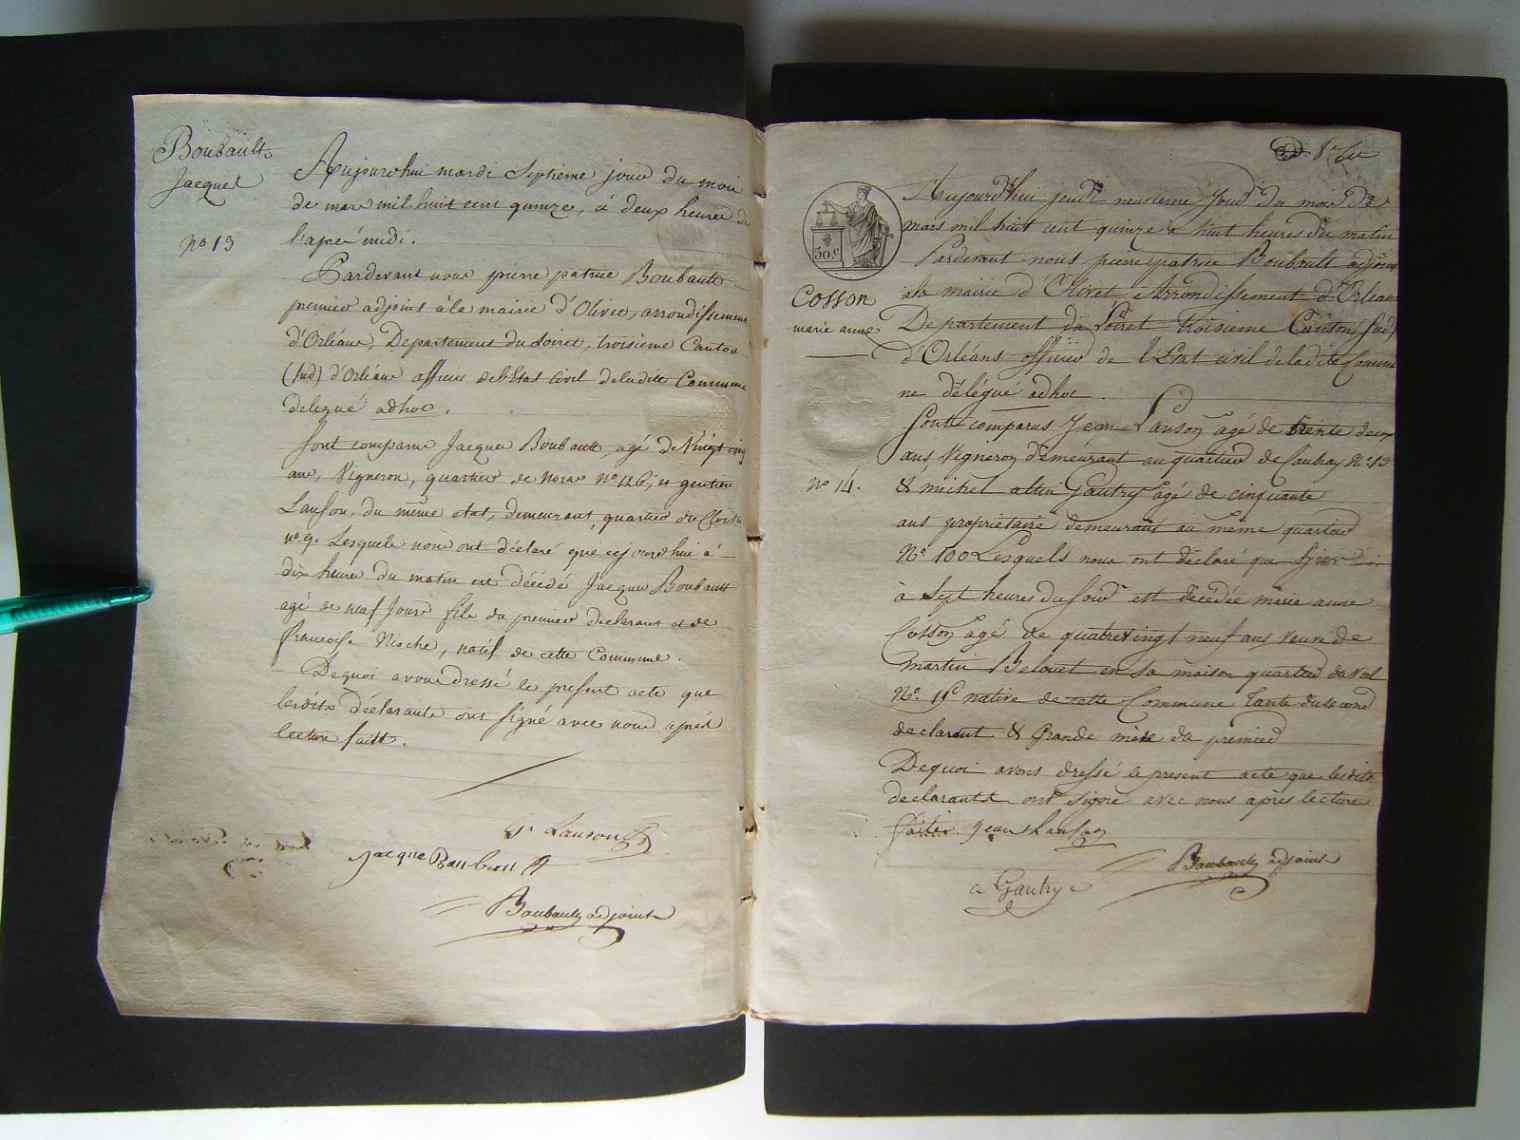 Boubault
Jacques
no 13
Aujourdhui mardi septieme jour du mois
de mars mil huit cent quinze, à deux heures de
l'apres midi.
Pardevant nous pierre patrice Boubault
premier adjoint à la mairie d'Olivet, arrondissement
d'Orléans, Departement du Loiret, troisieme Canton
(Sud) d'Orléans officier del'Etat Civil deladite Commune
delegué adhoc.
Sont comparus Jacques Boubault, agé de Vingt cinq
ans, Vigneron, quartier de No 126, et gentien
Lanson, du même etat, demeurant quartier du
no 9. Lesquels nous ont déclaré que cejourdhui à
dix heures du matin est décédé Jacques Boubault
agé de neuf Jours fils du premier declarant et de
francoise natif de cette Commune.
Dequoi avons dressé le present acte que
lesdits déclarants ont signé avec nous après
lecture faite.
G. Lanson
Jacque Boubault
Boubault adjoint
Aujourd'hui jeudi neuvieme Jour du mois de
mars mil huit cent quinze à huit heures du matin
Pardevant nous pierre patrice Boubault adjoint
30.c
Cosson
marie anne
à la mairie d'Olivet, Arrondissement d'Orleans
Departement du Loiret troisieme Canton (Sud)
d'Orléans officier de l'Etat civil deladite Commu
ne délégué adhoc.
Sont comparus Jean Lanson agé de trente deux
ans Vigneron demeurant au quartier de Caubray No 13
no 14.
& michel Gautry agé de cinquante
ans propriétaire demeurant au même quartier
No 100 Lesquels nous ont déclaré que
à Sept heures du soir est décédée marie anne
Cosson agé de quatrevingt neuf ans veuve de
martin Belouet en sa maison quartier du val
No native de cette Commune tante du second
declarant & Grande mère du premier
Dequoi avons dressé le present acte que lesdits
declarants ont signé avec nous après lecture
faite. Jean Lanson
Boubault adjoint
a Gautry